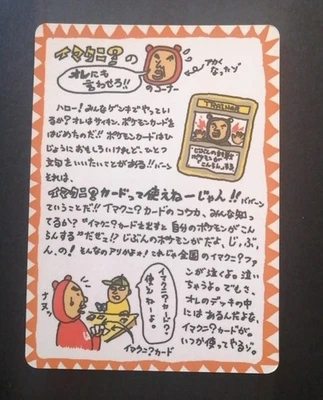 イマクニ?の
オレにも
言わせろ!!
のコーナー
アカく
なったゾ
ハロー!みんなゲンキでやってい
るか?オレはサイキン、ポケモンカードを
はじめたのだ!!ポケモンカードはひ
じょうにおもしろいけれど、ひとつ
文句をいいたいことがある!!バーン
それは、
イマクニ?カードって使えねーじゃん!!ババーン
ていうことだ!!イマクニ?カードのコウカ、みんな知っ
てるか?"イマクニ?カードを出すと自分のポケモンがこん
らんする"だぜェ!?じぶんのポケモンがだよ、じ、ぶ、
ん、の!そんなのアリかよォ!これじゃ全国のイマクニ?ファ
ンが泣くよ。泣い
ちゃうよ。でもさ、
オレのデッキの中
にはあるんだよな、
イマクニ?カードが。
いつか使ってやるゾ。
TRAINER
じぶんの対戦
ポケモンが
こんらん する
イマクニ?カード?
使えねーよ。
イマクニ?カード